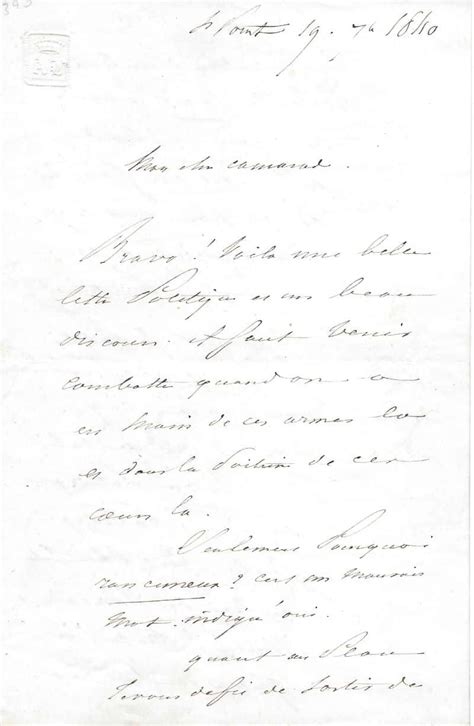 395
19. 7b 1840
Mon cher camarade.
Bravo! Voila une belle
lettre Politique et un beau
discours. Il faut venir
combattre quand on a
en main de ces armes la
et dans la poitrine de ces
cœurs la.
Seulement Pourquoi
rancuneux? c'est un mauvais
mot
quant au Beau
de sortir de